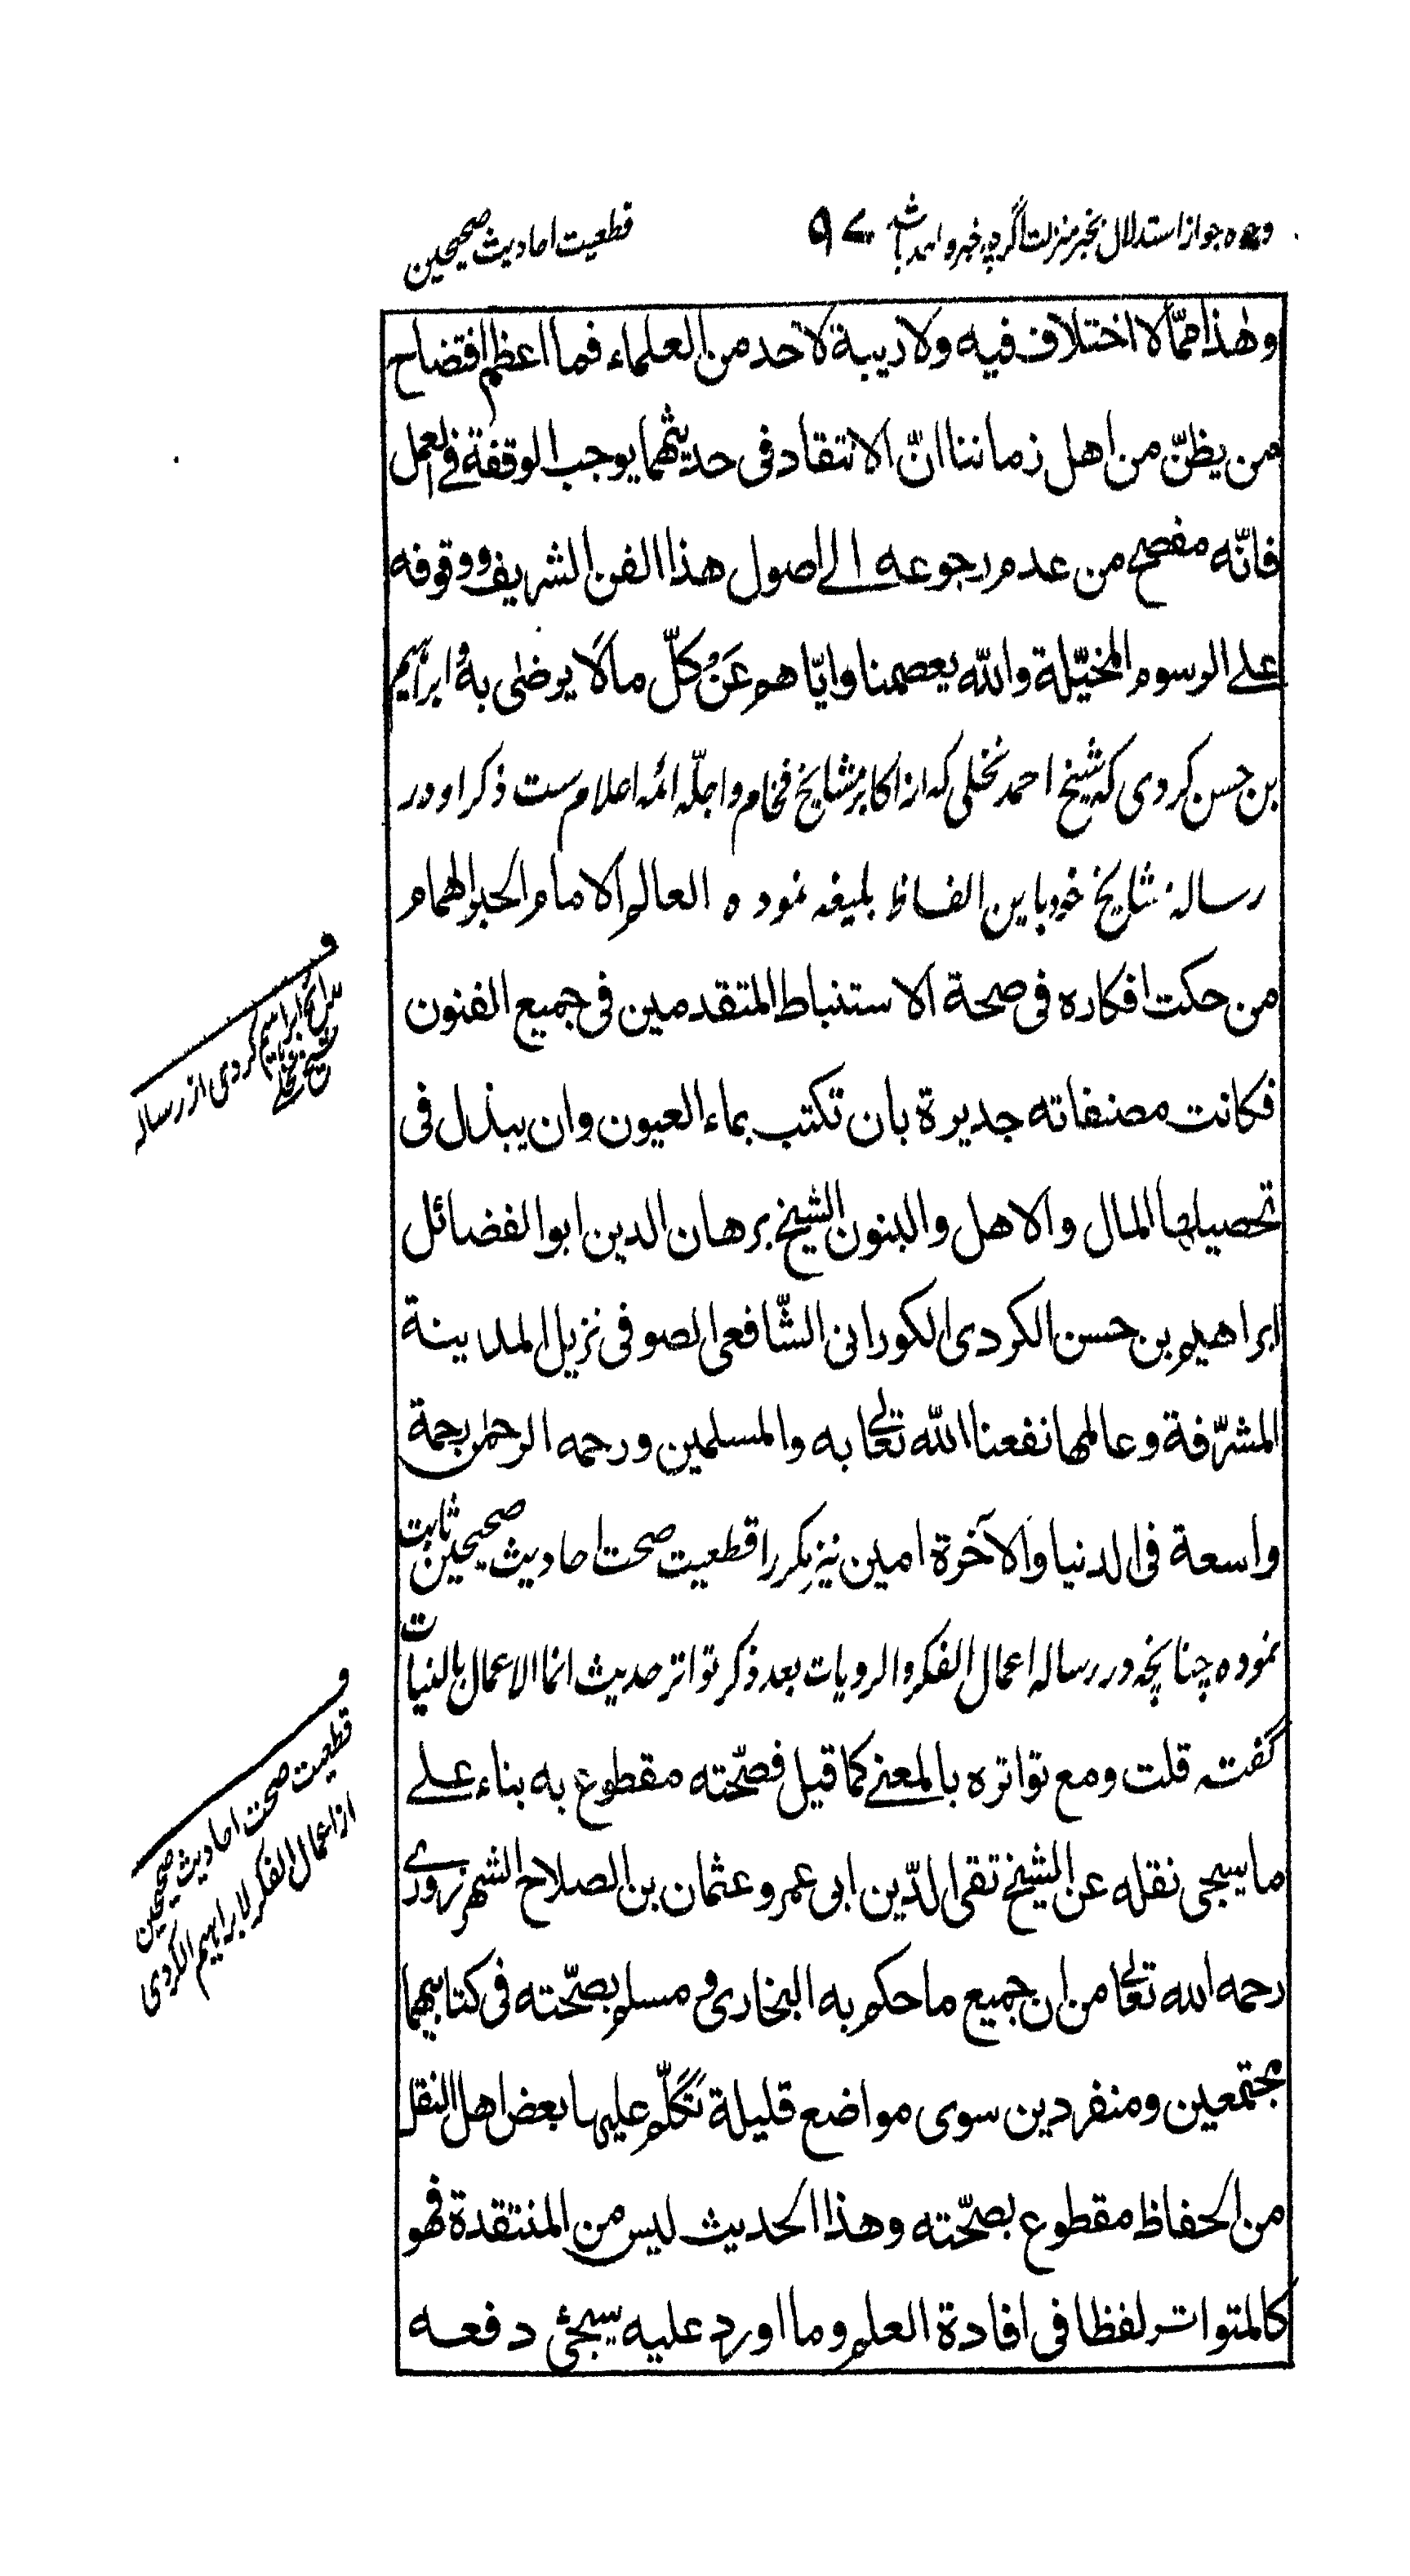 وجوه جواز استدلال بخبر منزلت اگرچه خبر واحد باشد ۹۷ قطعیت احادیث صحیحین
وهذا ممّا لا اختلاف فیه ولا ریبة لاحد من العلماء فما اعظم افتضاح
من یظنّ من اهل زماننا انّ الانتقاد فی حدیثهما یوجب الوقفة فی العمل
فانّه مفصح من عدم رجوعه الی اصول هذا الفن الشریف ووقوفه
علی الرسوم المخیّلة والله یعصمنا وایّاهم عَنْ کلّ ما لا یرضی به و ابراهیم
بن حسن کردی که شیخ احمد نخلی که از اکابر مشایخ فخام و اجلّه ائمه اعلام ست ذکر او در
رساله مشایخ خود باین الفاظ بلیغه نموده العالم الامام الحبر الهمام
من حکت افکاره فی صحة الاستنباط المتقدمین فی جمیع الفنون
فکانت مصنفاته جدیرة بان تکتب بماء العیون وان یبذل فی
تحصیلها المال والاهل والبنون الشیخ برهان الدین ابو الفضائل
ابراهیم بن حسن الکردی الکورانی الشّافعی الصوفی نزیل المدینة
المشرّفة وعالمها نفعنا الله تعالی به والمسلمین ورحمه الرحمن برحمة
واسعة فی الدنیا والآخرة امین نیز مکررا قطعیت صحت احادیث صحیحین ثابت
نموده چنانچه در رساله اعمال الفکر والرویات بعد ذکر تواتر حدیث انما الاعمال بالنیات
گفته قلت ومع تواتره بالمعنی کما قیل فصحّته مقطوع به بناء علی
ما سیجی نقله عن الشیخ تقی الدّین ابی عمرو عثمان بن الصلاح الشهرزوری
رحمه الله تعالی من ان جمیع ما حکم به البخاری و مسلم بصحّته فی کتابیهما
مجتمعین ومنفردین سوی مواضع قلیلة تکلّم علیها بعض اهل النقل
من الحفاظ مقطوع بصحّته وهذا الحدیث لیس من المنتقدة فهو
کالمتواتر لفظا فی افادة العلم وما اورد علیه سیجئ دفعه
ف
مدائح ابراهیم کردی از رساله
شیخ نخلی
ف
قطعیت صحت احادیث صحیحین
از اعمال الفکر لابراهیم الکردی